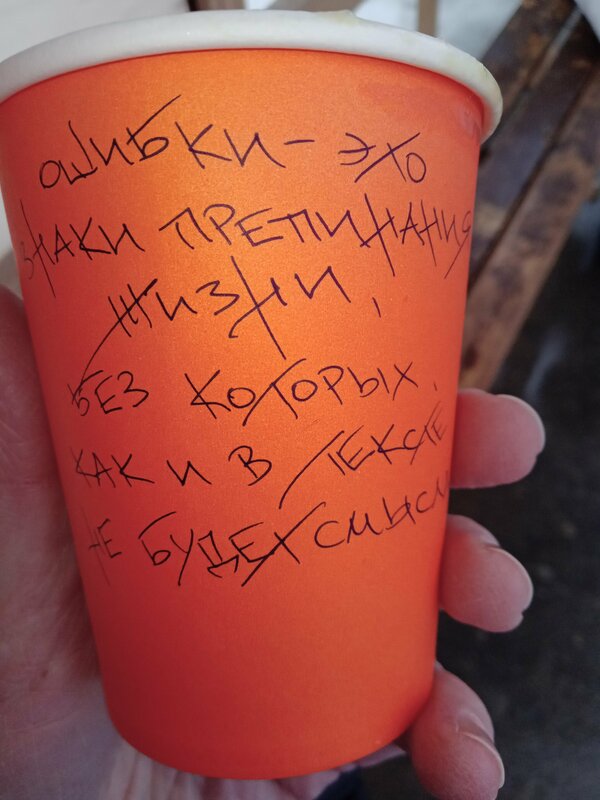 ОШИБКИ - ЭТО
ЗНАКИ ПРЕПИНАНИЯ
ЖИЗНИ,
БЕЗ КОТОРЫХ,
КАК И В ТЕКСТЕ
НЕ БУДЕТ СМЫСЛ